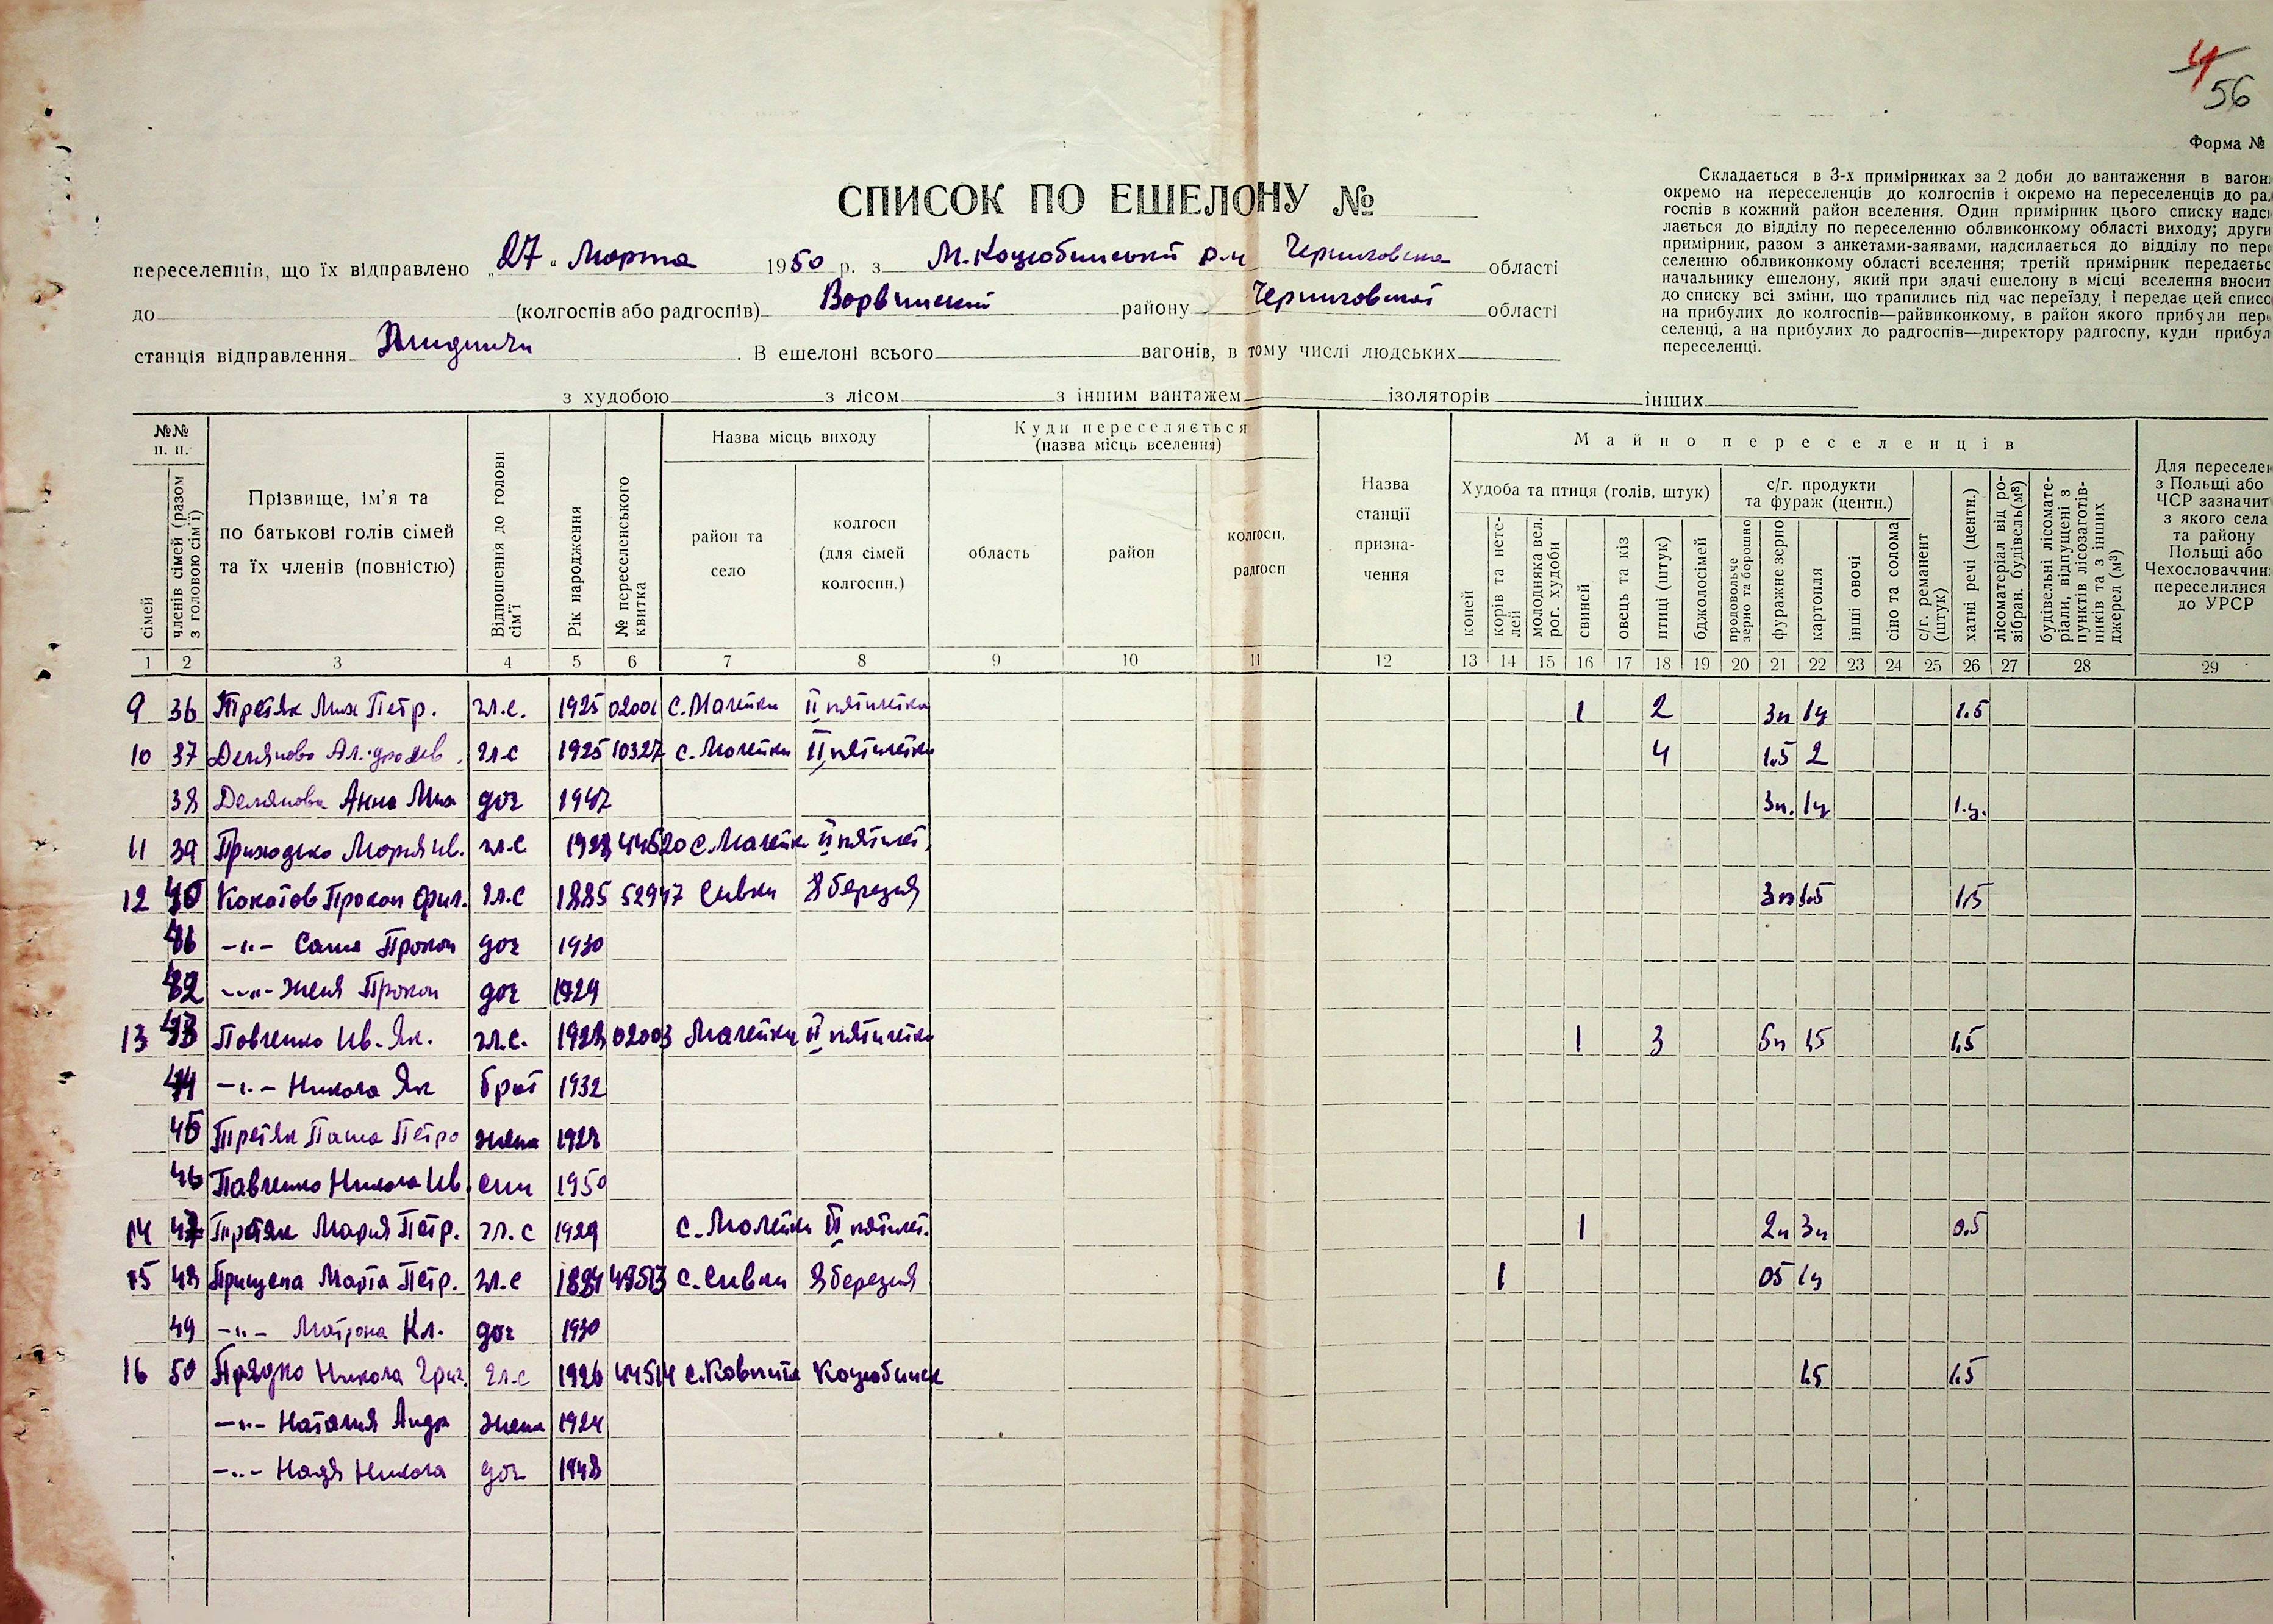 4
56
Форма №
СПИСОК ПО ЕШЕЛОНУ №
Складається в 3-х примірниках за 2 доби до вантаження в вагон
окремо на переселенців до колгоспів і окремо на переселенців до ра
госпів в кожний район вселення. Один примірник цього списку надсі
лається до відділу по переселенню облвиконкому області виходу; други
примірник, разом з анкетами-заявами, надсилається до відділу по пере
селенню облвиконкому області вселення; третій примірник передаєтьс
начальнику ешелону, який при здачі ешелону в місці вселення вносит
до списку всі зміни, що трапились під час переїзду, і передає цей списо
на прибулих до колгоспів—райвиконкому, в район якого прибули пер
селенці, а на прибулих до радгоспів—директору радгоспу, куди прибул
переселенці.
переселенців, що їх відправлено „27" Марта 1950 р. з М.Коцюбинський р-н Черниговска області
до (колгоспів або радгоспів) Варвинский району Черниговской області
станція відправлення В ешелоні всього вагонів, в тому числі людських
з худобою з лісом з іншим вантажем ізоляторів інших
№№ п. п.
сімей
членів сімей (разом з головою сім'ї)
Прізвище, ім'я та по батькові голів сімей та їх членів (повністю)
Відношення до голови сім'ї
Рік народження
№ переселенського квитка
Назва місць виходу
район та село
колгосп (для сімей колгоспн.)
Куди переселяється (назва місць вселення)
область
район
колгосп, радгосп
Назва станції призна-чення
Майно переселенців
Худоба та птиця (голів, штук)
коней
корів та нете-лей
молодняка вел. рог. худоби
свиней
овець та кіз
птиці (штук)
бджолосімей
с/г. продукти та фураж (центн.)
продовольче зерно та борошно
фуражне зерно
картопля
інші овочі
сіно та солома
с/г. реманент (штук)
хатні речі (центн.)
лісоматеріал від ро-зібран. будівель (м³)
будівельні лісомате-ріали, відпущені з пунктів лісозаготів-ників та з інших джерел (м³)
Для переселен з Польщі або ЧСР зазначит з якого села та району Польщі або Чехословаччин переселилися до УРСР
1 2 3 4 5 6 7 8 9 10 11 12 13 14 15 16 17 18 19 20 21 22 23 24 25 26 27 28 29
9 36 Третяк Мих Петр. гл.с. 1925 02001 с.Малейки II пятилетка 1 2 3п 1ц 1.5
10 37 гл.с 1925 10327 с.Малейки II пятилетка 4 1.5 2
38 Анна Мих доч 1947 3п. 1ц 1.ц.
11 39 Приходько Мария Ив. гл.с 44520 с.Малейк II пятилет.
12 40 Прокоп Фил. гл.с 1885 52947 Сивки 8 березня 3п 1.5 1,5
41 -"- Саша Прокоп доч 1930
42 -"- Женя Прокоп доч 1929
13 43 Павленко Ив. Як. гл.с. 1928 02003 Малейки II пятилетка 1 3 5п 1,5 1,5
44 -"- Никола Як брат 1932
45 Третяк Паша Петро жена 1928
46 Павленко Никола Ив. син 1950
14 47 Третяк Мария Петр. гл.с 1929 с.Малейки II пятилет. 1 2п 3п 0.5
15 48 Прищепа Марта Петр. гл.с с.Сивки 8 березня 1 05 1ц
49 -"- Матрона Кл. доч 1930
16 50 Прядко Никола Григ. гл.с 1926 44514 с.Ковпита Коцюбинск 1.5 1.5
-"- Наталия Андр жена 1924
-"- Надя Никола доч 1948